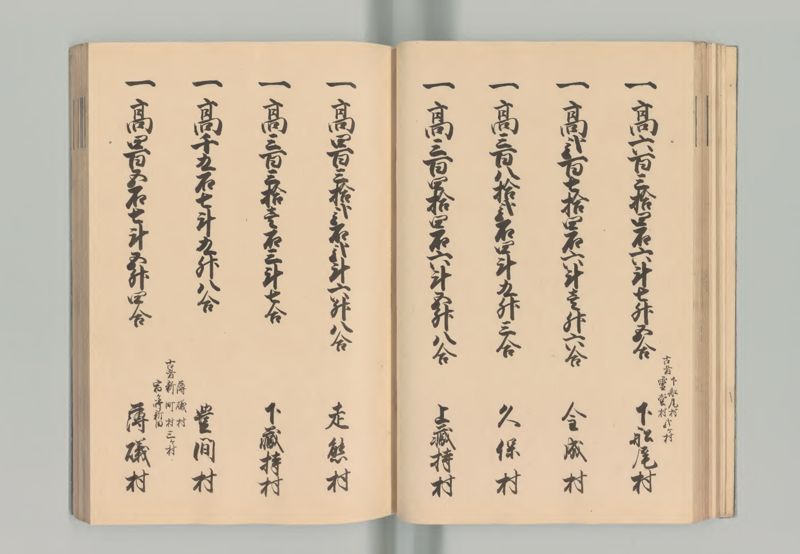 古者 下船尾村 弐ヶ村
一高六百三拾四石六斗七升五合 下船尾村
一高弐百七拾四石六斗壱升六合 金成村
一高三百八拾弐石四斗九升三合 久保村
一高三百四拾四石六斗五升八合 上蔵持村
一高四百三拾弐石弐斗六升八合 走熊村
一高三百三拾壱石三斗七合 下蔵持村
一高千五石七斗九升八合 豊間村
古者 薄磯村 新町村 三ヶ村
一高四百五石七斗五升四合 薄磯村